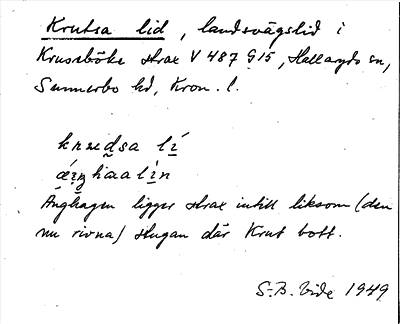 Krutsa lid, landsvägslid i
Krussböke strax V 487 G15, Hallaryds sn,
Sunnerbo hd, Kron. l.
Änghagen ligger strax intill liksom (den
nu rivna) stugan där Krut bott.
S.B. Vide 1949